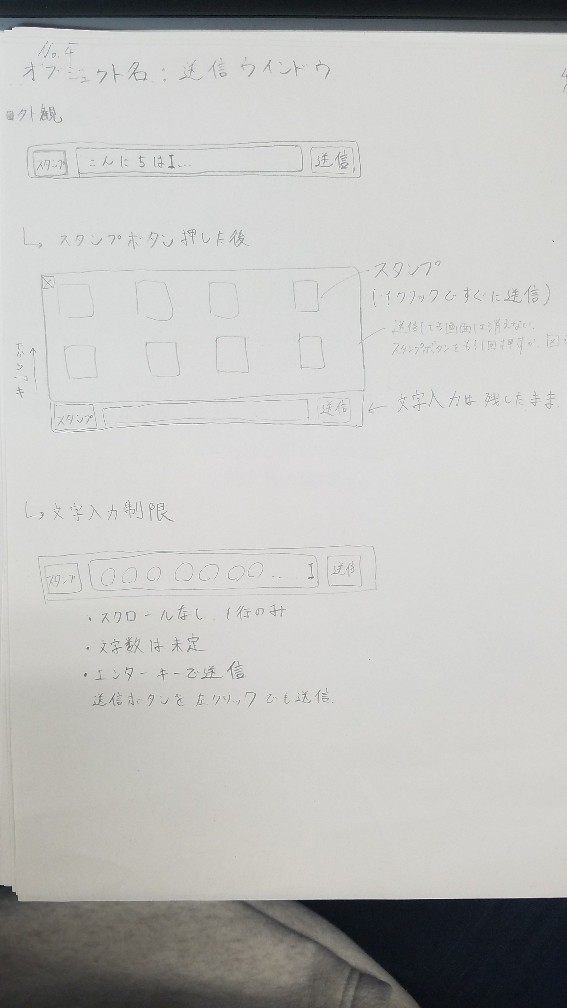 No.4
オブジェクト名：送信ウインドウ
外観
スタンプ こんにちはI... 送信
スタンプボタン押した後
スタンプ
(1クリックですぐに送信)
送信しても画面は消えない
スタンプボタンをもう1回押すか
スタンプ 送信
← 文字入力は残したまま
文字入力制限
スタンプ 〇〇〇〇〇〇〇... I 送信
・スクロールなし 1行のみ
・文字数は未定
・エンターキーで送信
送信ボタンを左クリックでも送信.